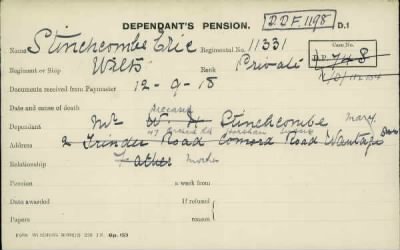 DEPENDANT'S PENSION. DDF,1198 D.1
Name Stinchcombe Eric Regimental No. 11331 Case No.
Regiment or Ship Wilts Rank Private
Documents received from Paymaster 12-9-18
Date and cause of death
Dependant Mr W. Stinchcombe Mary
Address Grinder Road Road Wantage
Relationship Father Mother
Pension a week from
Date awarded If refused
Papers reason